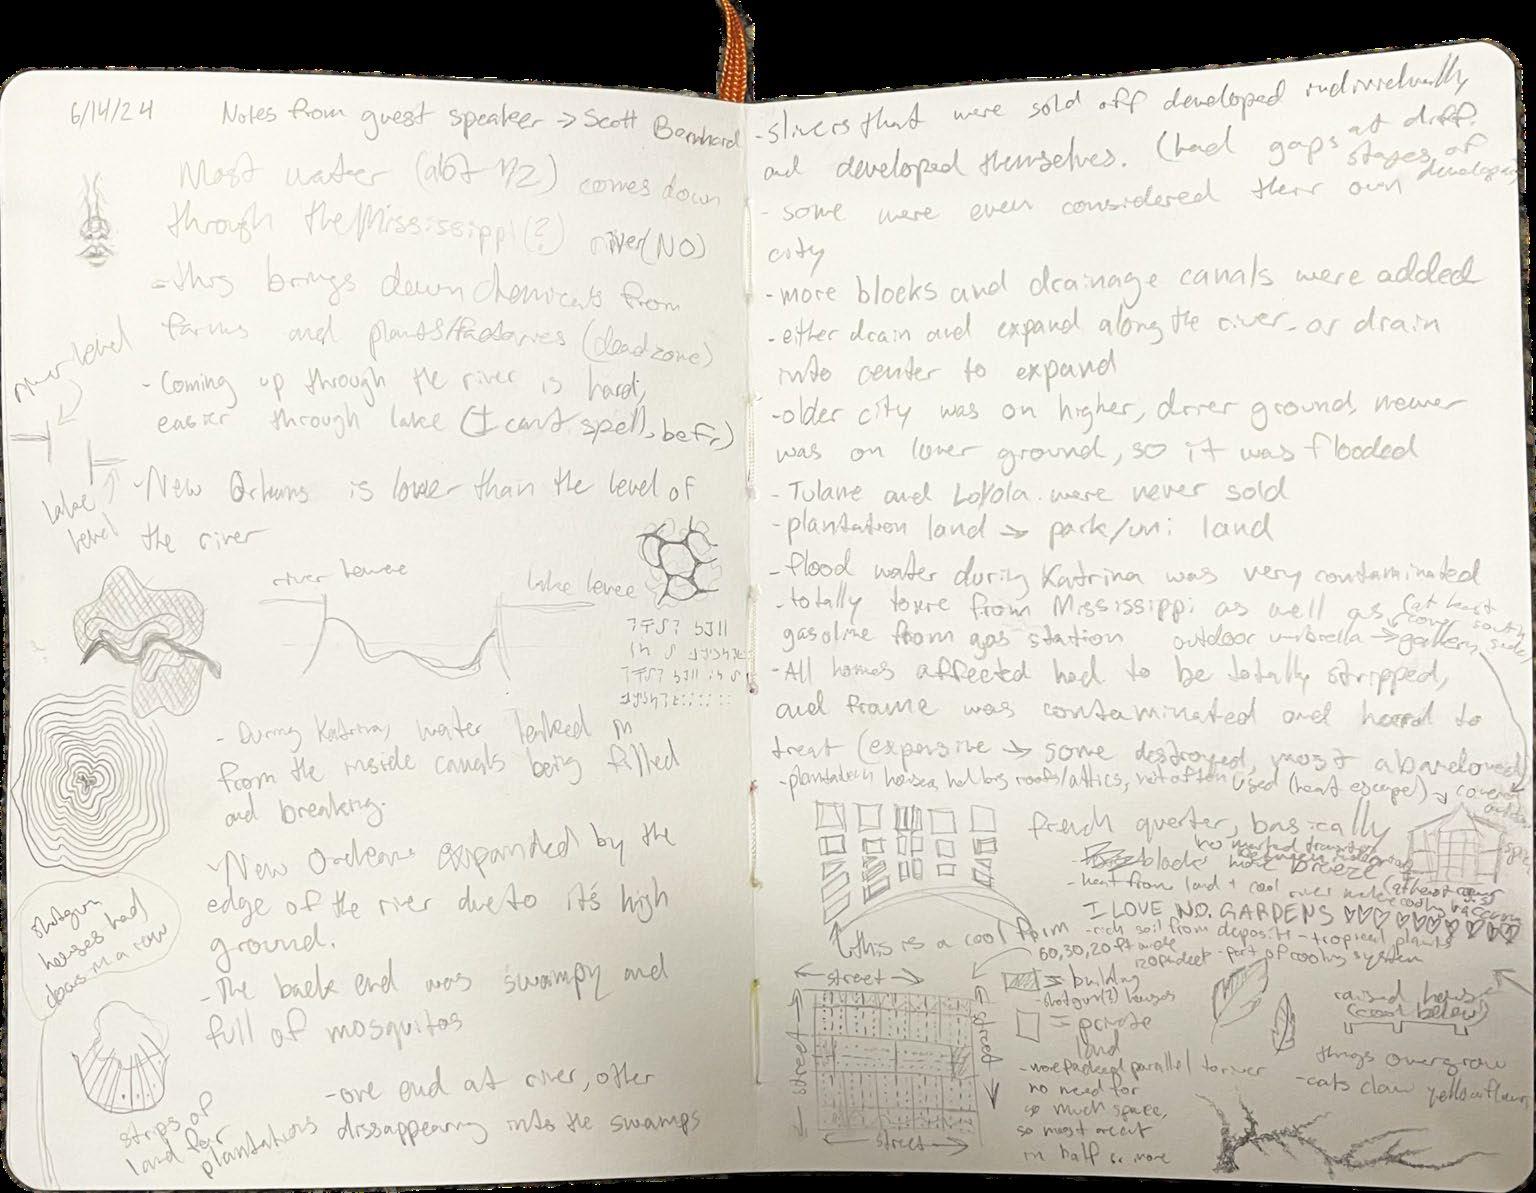 6/14/24
Notes from guest speaker → Scott Bernhard
Most water (abt 1/2) comes down
through the Mississippi(?) river (NO)
- this brings down chemicals from
farms and plants/factories (deadzone)
- Coming up through the river is hard,
easier through lake (I can't spell, befr)
river level
lake
level
- New Orleans is lower than the level of
the river
river levee
lake levee
- During Katrina, water leaked in
from the inside canals being filled
and breaking.
- New Orleans expanded by the
edge of the river due to it's high
ground.
- The back end was swampy and
full of mosquitos
- one end at river, other
dissappearing into the swamps
shotgun
houses had
doors in a row
strips of
land for
plantations
- slivers that were sold off developed individually
and developed themselves. (had gaps at diff.
stages of
- some were even considered their own
city
- more blocks and drainage canals were added
- either drain and expand along the river - or drain
into center to expand
- older city was on higher, drier ground, newer
was on lower ground, so it was flooded
- Tulane and Loyola were never sold
- plantation land → park/uni land
- flood water during Katrina was very contaminated
- totally toxic from Mississippi as well as
gasoline from gas station
outdoor umbrella → gallery
(at least
cover south
side)
- All homes affected had to be totally stripped,
and frame was contaminated and hard to
treat (expensive → some destroyed, most abandoned)
- plantation houses, roofs/attics, not often used (heat escape)
french quarter, basically
blocks more breeze
- heat from land + cool river
I LOVE N.O. GARDENS
- rich soil from deposits - tropical plants
- part of cooling system
this is a cool form
60,30,20 ft wide
120ft deep
= building
- shotgun(?) houses
= private
land
- more packed parallel to river
no need for
so much space,
so most are cut
in half or more
street
street
street
street
raised house
(cool below)
things overgrow
- cats claw yellow flower